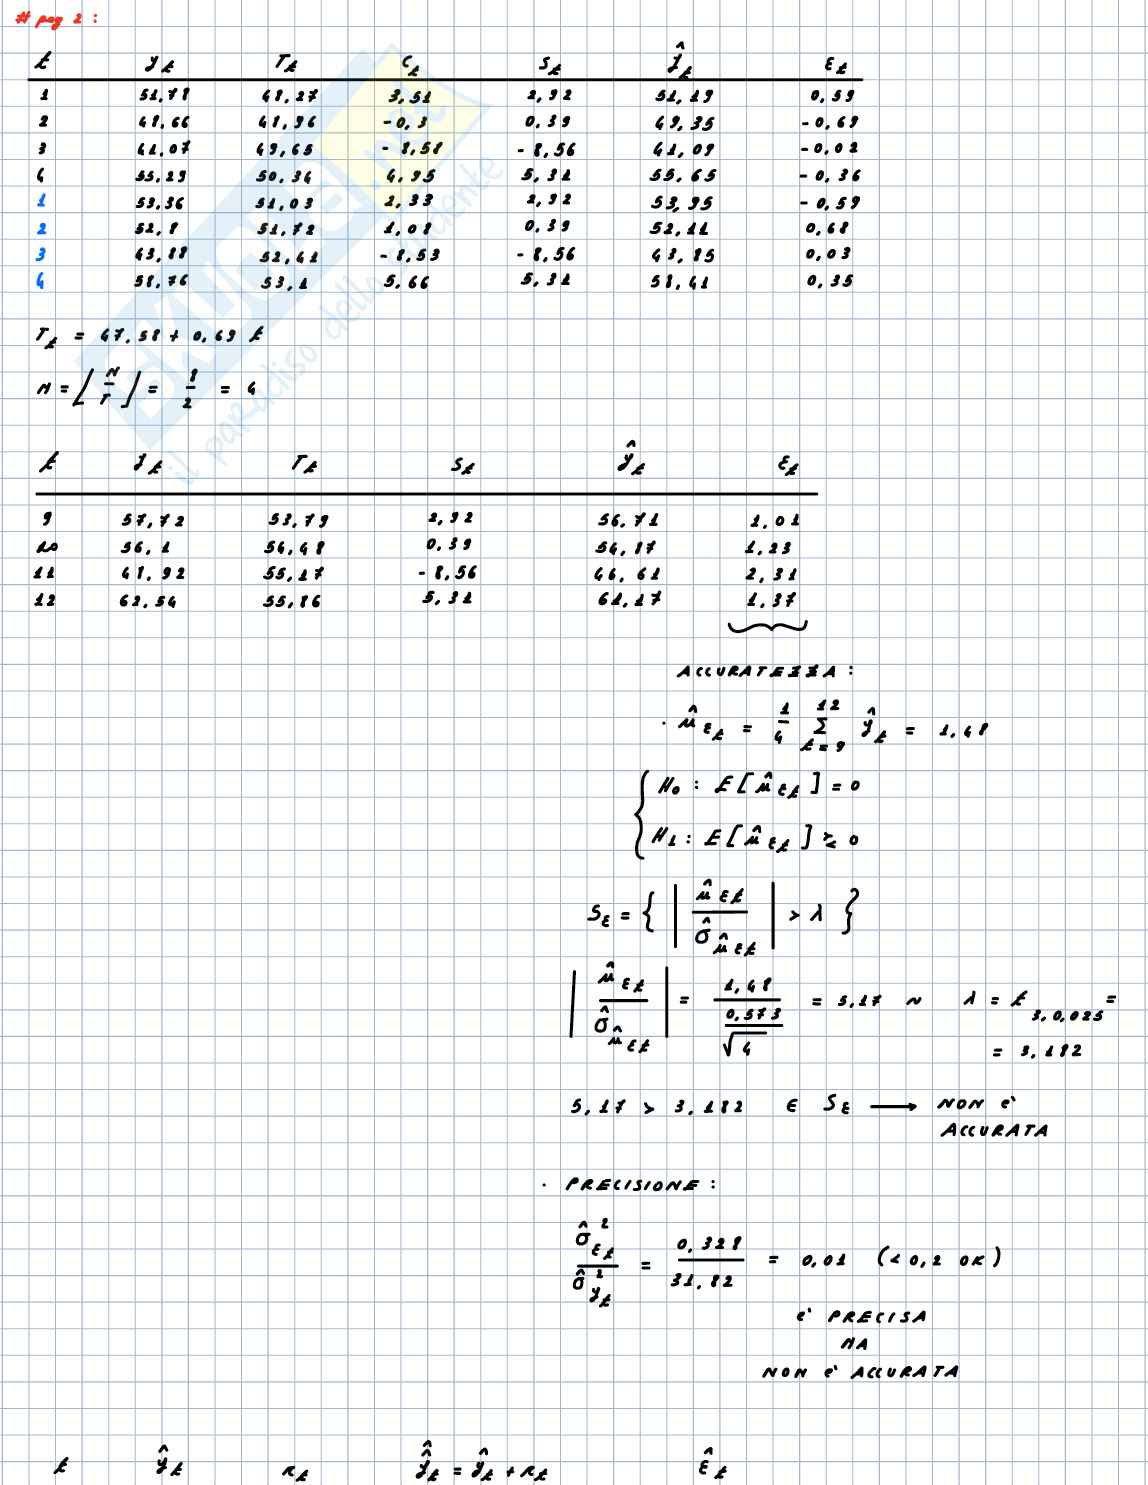 # pag 2 :
t y_t T_t C_t S_t ŷ_t ε_t
1 51,78 48,27 3,51 2,92 51,19 0,59
2 48,66 48,96 -0,3 0,39 49,35 -0,69
3 41,07 49,65 -8,58 -8,56 41,09 -0,02
4 55,29 50,34 4,95 5,31 55,65 -0,36
1 53,36 51,03 2,33 2,92 53,95 -0,59
2 52,8 51,72 1,08 0,39 52,11 0,68
3 43,88 52,41 -8,53 -8,56 43,85 0,03
4 58,76 53,1 5,66 5,31 58,41 0,35
T_t = 47,58 + 0,69 t
M = ⌊N/T⌋ = 8/2 = 4
t y_t T_t S_t ŷ_t ε_t
9 57,72 53,79 2,92 56,71 1,01
10 56,1 54,48 0,39 54,87 1,23
11 48,92 55,17 -8,56 46,61 2,31
12 62,54 55,86 5,31 61,17 1,37
ACCURATEZZA :
· μ̂_εt = 1/4 Σ_{t=9}^{12} ŷ_t = 1,48
H₀ : E[μ̂_εt] = 0
H₁ : E[μ̂_εt] ≷ 0
S_ε = { | μ̂_εt / σ̂_μ̂εt | > λ }
| μ̂_εt / σ̂_μ̂εt | = 1,48 / (0,573 / √4) = 5,17 ~ λ = t_3,0,025 =
= 3,182
5,17 > 3,182 ∈ S_ε → NON è
ACCURATA
· PRECISIONE :
σ̂²_εt / σ̂²_yt = 0,328 / 31,82 = 0,01 (< 0,2 OK)
è PRECISA
MA
NON è ACCURATA
t ŷ_t R_t ŷ̂_t = ŷ_t + R_t ε̂_t
il paradiso dello studente